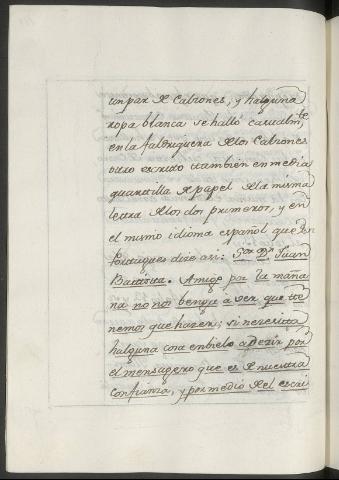 un par de Calzones, y halguna
ropa blanca se halló casualm.te
en la faldriguera de los Calzones
otro escrito tambien en media
quartilla de papel de la misma
letra de los dos primeros, y en
el mismo idioma español que en
Portugues dize asi: S.or D.n Juan
Battista. Amigo por la maña
na no nos benga a ver que te
nemos que hazer; si nezesita
halguna cosa enbielo a dezir por
el mensagero que es de nuestra
confianza, y por medio del escri